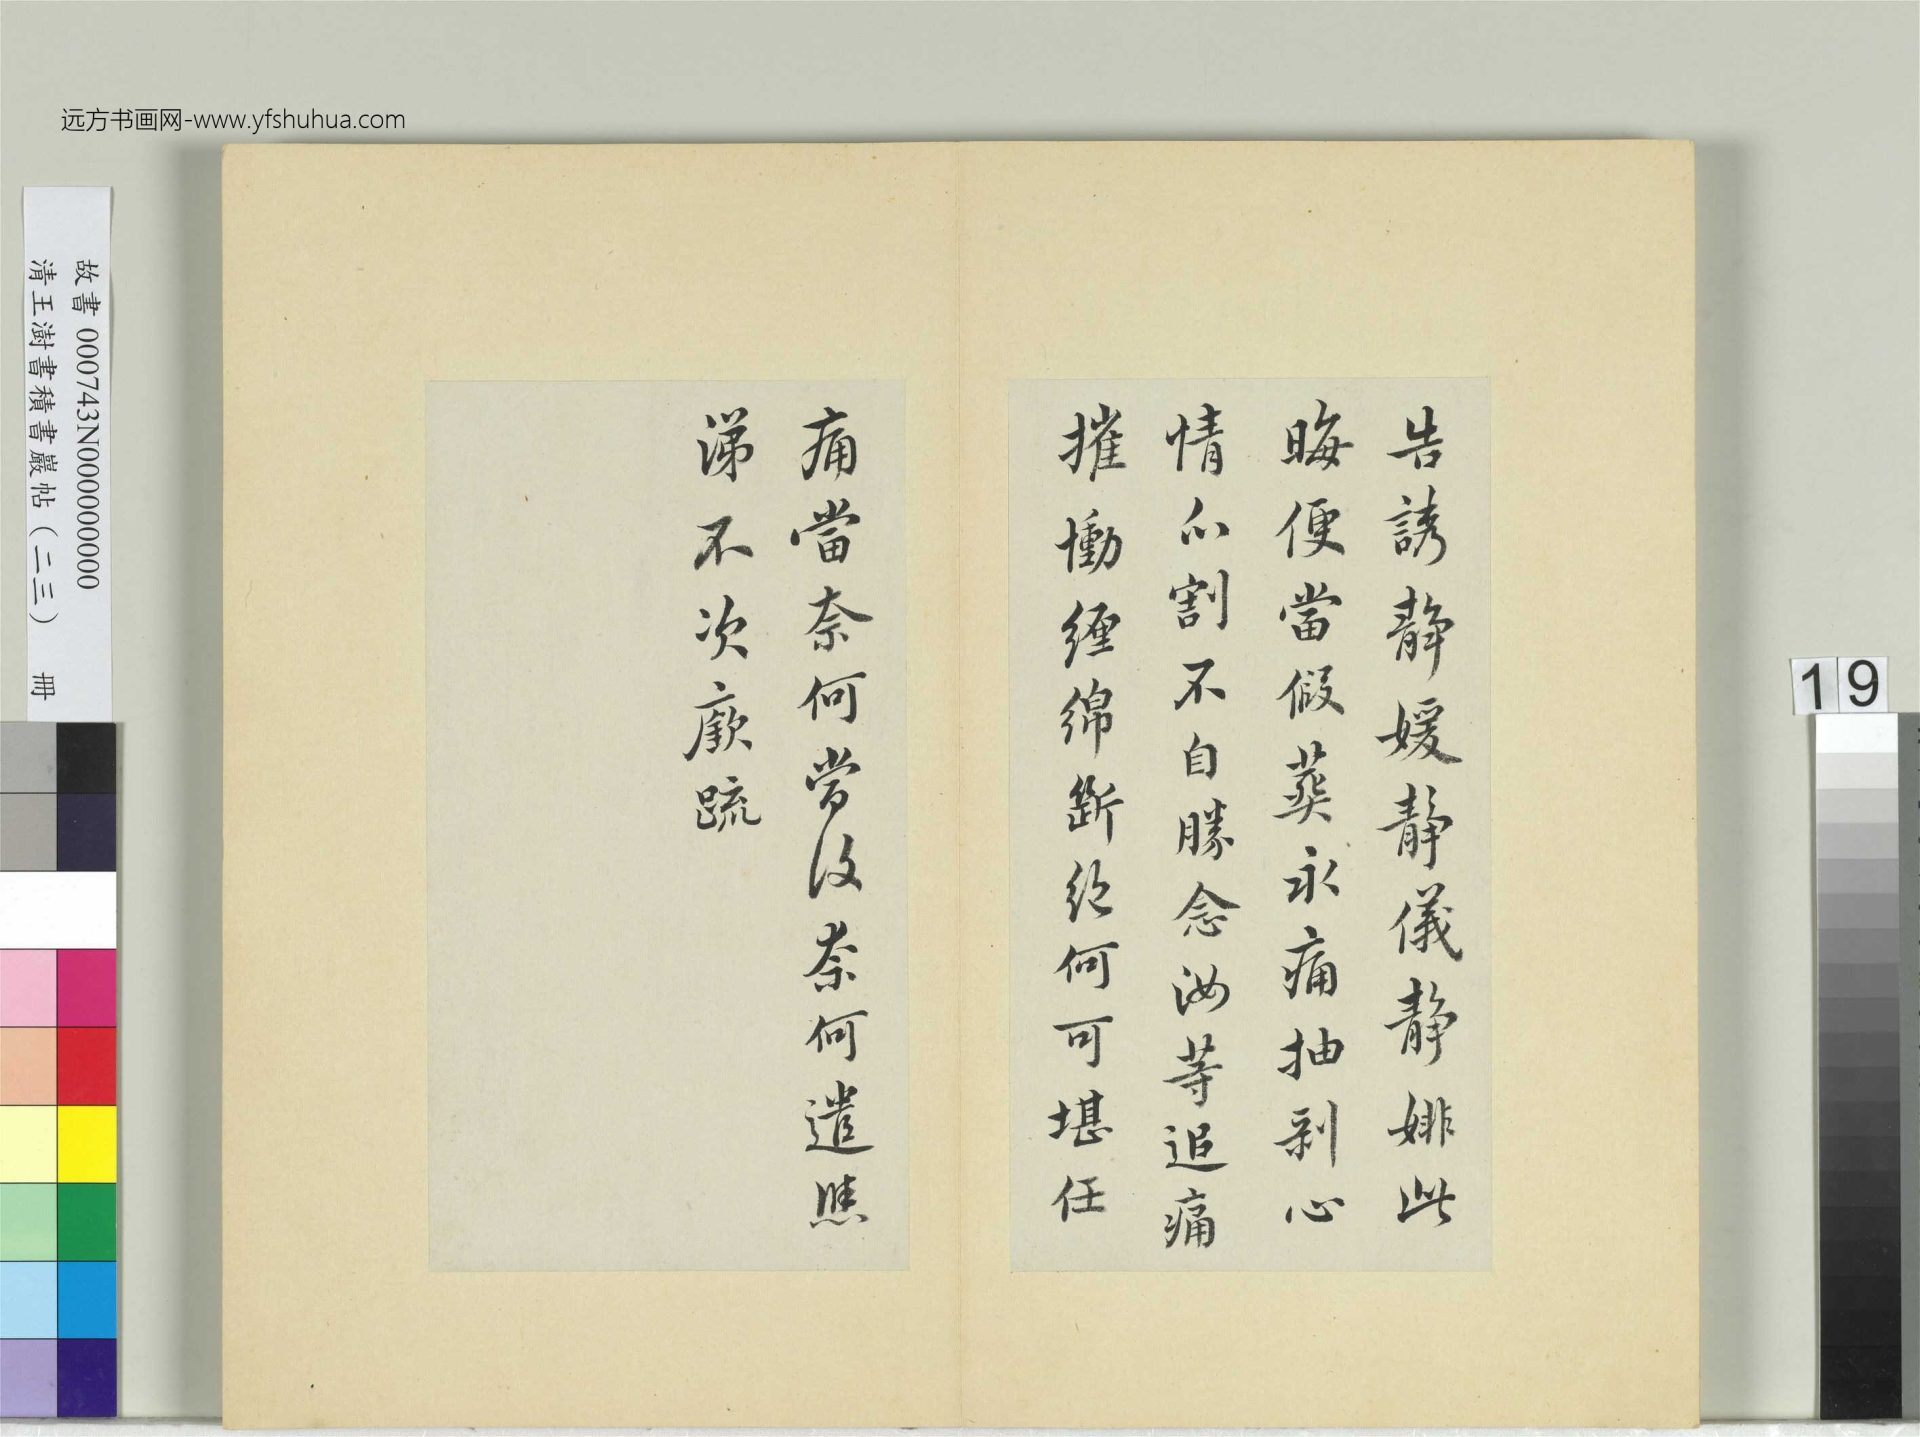 远方书画网-www.yfshuhua.com
故書 000743N000000000
清王澍書積書巖帖（二三） 冊
19
告誘靜媛靜儀靜姚此
晦便當假葬永痛抽剝心
情心割不自勝念汝等追痛
摧慟纏綿斷絕何可堪任
痛當奈何當復奈何遣無
涕不次廞疏